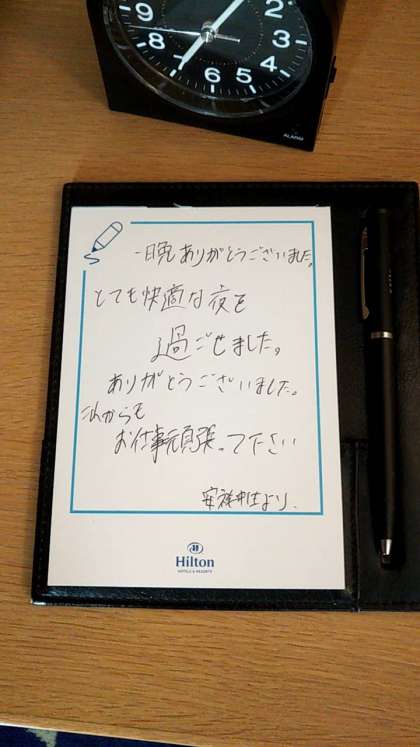 9
8
7
6
5
4
3
2
ALARM
一晩ありがとうございました。
とても快適な夜を
過ごせました。
ありがとうございました。
これからも
お仕事頑張って下さい
より.
Hilton
HOTELS & RESORTS